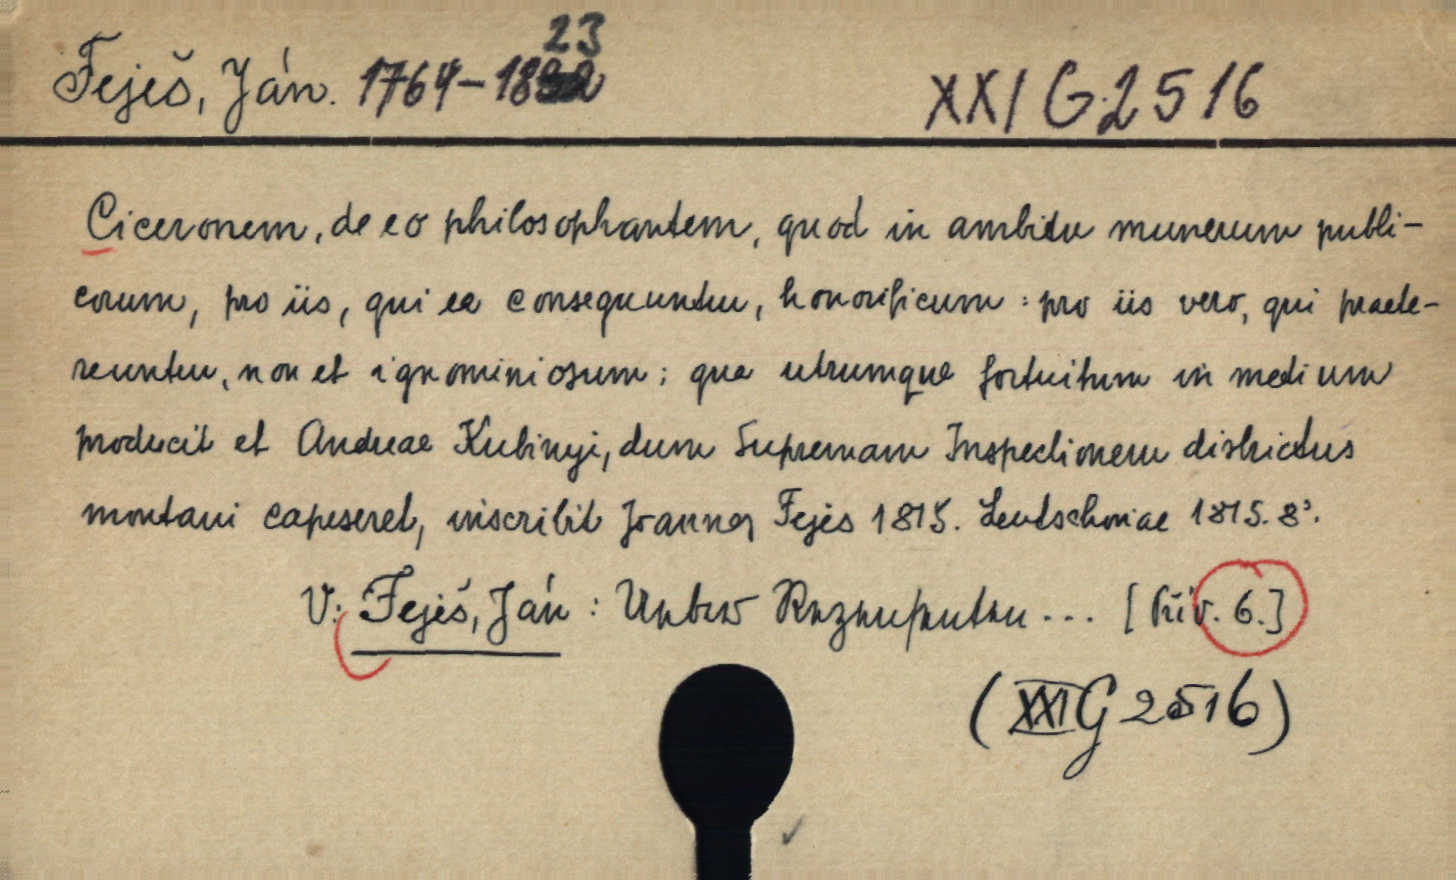 Feješ, Ján. 1764-1823
XXI G 2516
Ciceronem, de eo philosophantem, quod in ambitu munerum publi-
corum, pro iis, qui ea consequuntur, honorificum: pro iis vero, qui praete-
reuntur, non et ignominiosum; qua utrumque fortuitum in medium
producit et Andreae Kubinyi, dum Supremam Inspectionem districtus
montani capeseret, inscribit Joannes Fejés 1815. Leutschoviae 1815. 8°.
V: Fejéš, Ján: [Přív. 6.]
(XXI G 2516)